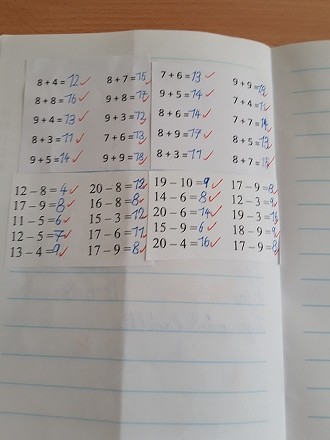 8 + 4 = 12 8 + 7 = 15
8 + 8 = 16 9 + 8 = 17
9 + 4 = 13 9 + 3 = 12
8 + 3 = 11 7 + 6 = 13
9 + 5 = 14 9 + 9 = 18
7 + 6 = 13 9 + 9 = 18
9 + 5 = 14 7 + 4 = 11
8 + 6 = 14 7 + 7 = 14
8 + 9 = 17 8 + 5 = 13
8 + 3 = 11 8 + 7 =
12 − 8 = 4 20 − 8 = 12
17 − 9 = 8 16 − 8 = 8
11 − 5 = 6 15 − 3 = 12
12 − 5 = 7 17 − 6 = 11
13 − 4 = 9 17 − 9 = 8
19 − 10 = 9 17 − 9 = 8
14 − 6 = 8 12 − 3 = 9
20 − 6 = 14 19 − 3 = 16
15 − 9 = 6 18 − 9 = 9
20 − 4 = 16 17 − 9 = 8